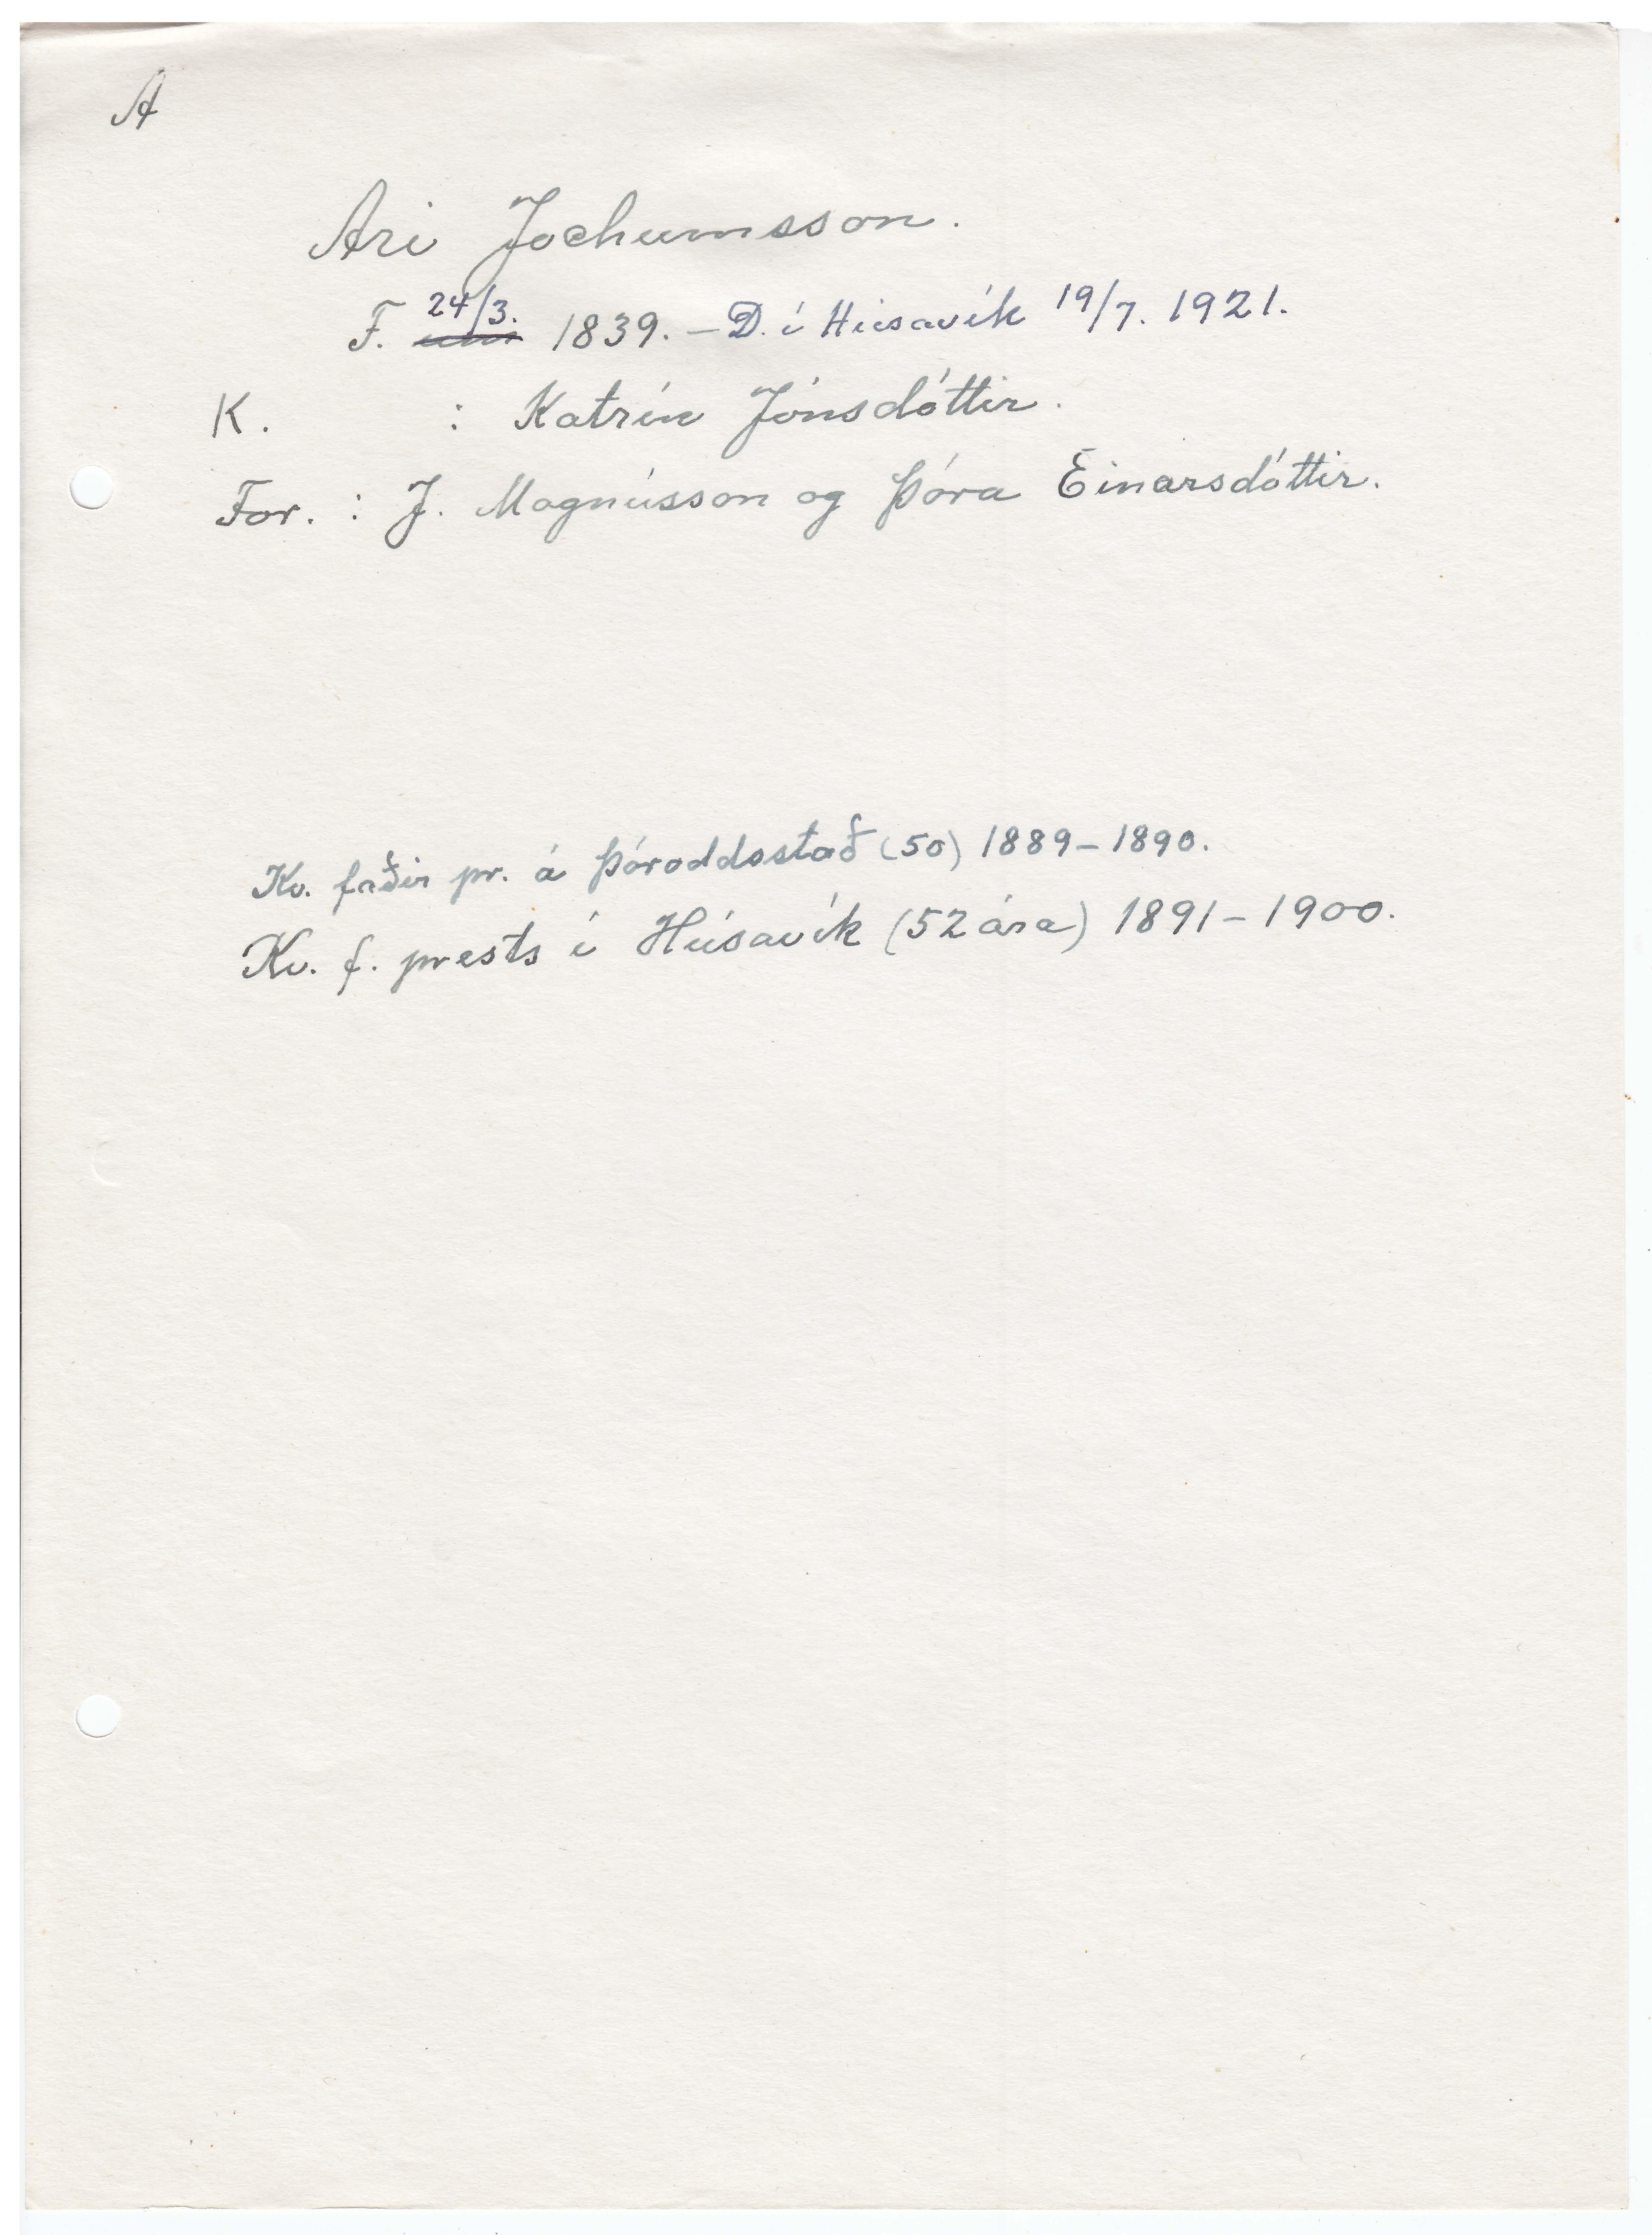 A
Ari Jochumsson.
F. 24/3. 1839. – D. í Húsavík 19/7. 1921.
K. : Katrín Jónsdóttir.
For. : J. Magnússon og Þóra Einarsdóttir.
Kv. faðir pr. á Þóroddsstað (50) 1889–1890.
Kv. f. prests í Húsavík (52 ára) 1891–1900.